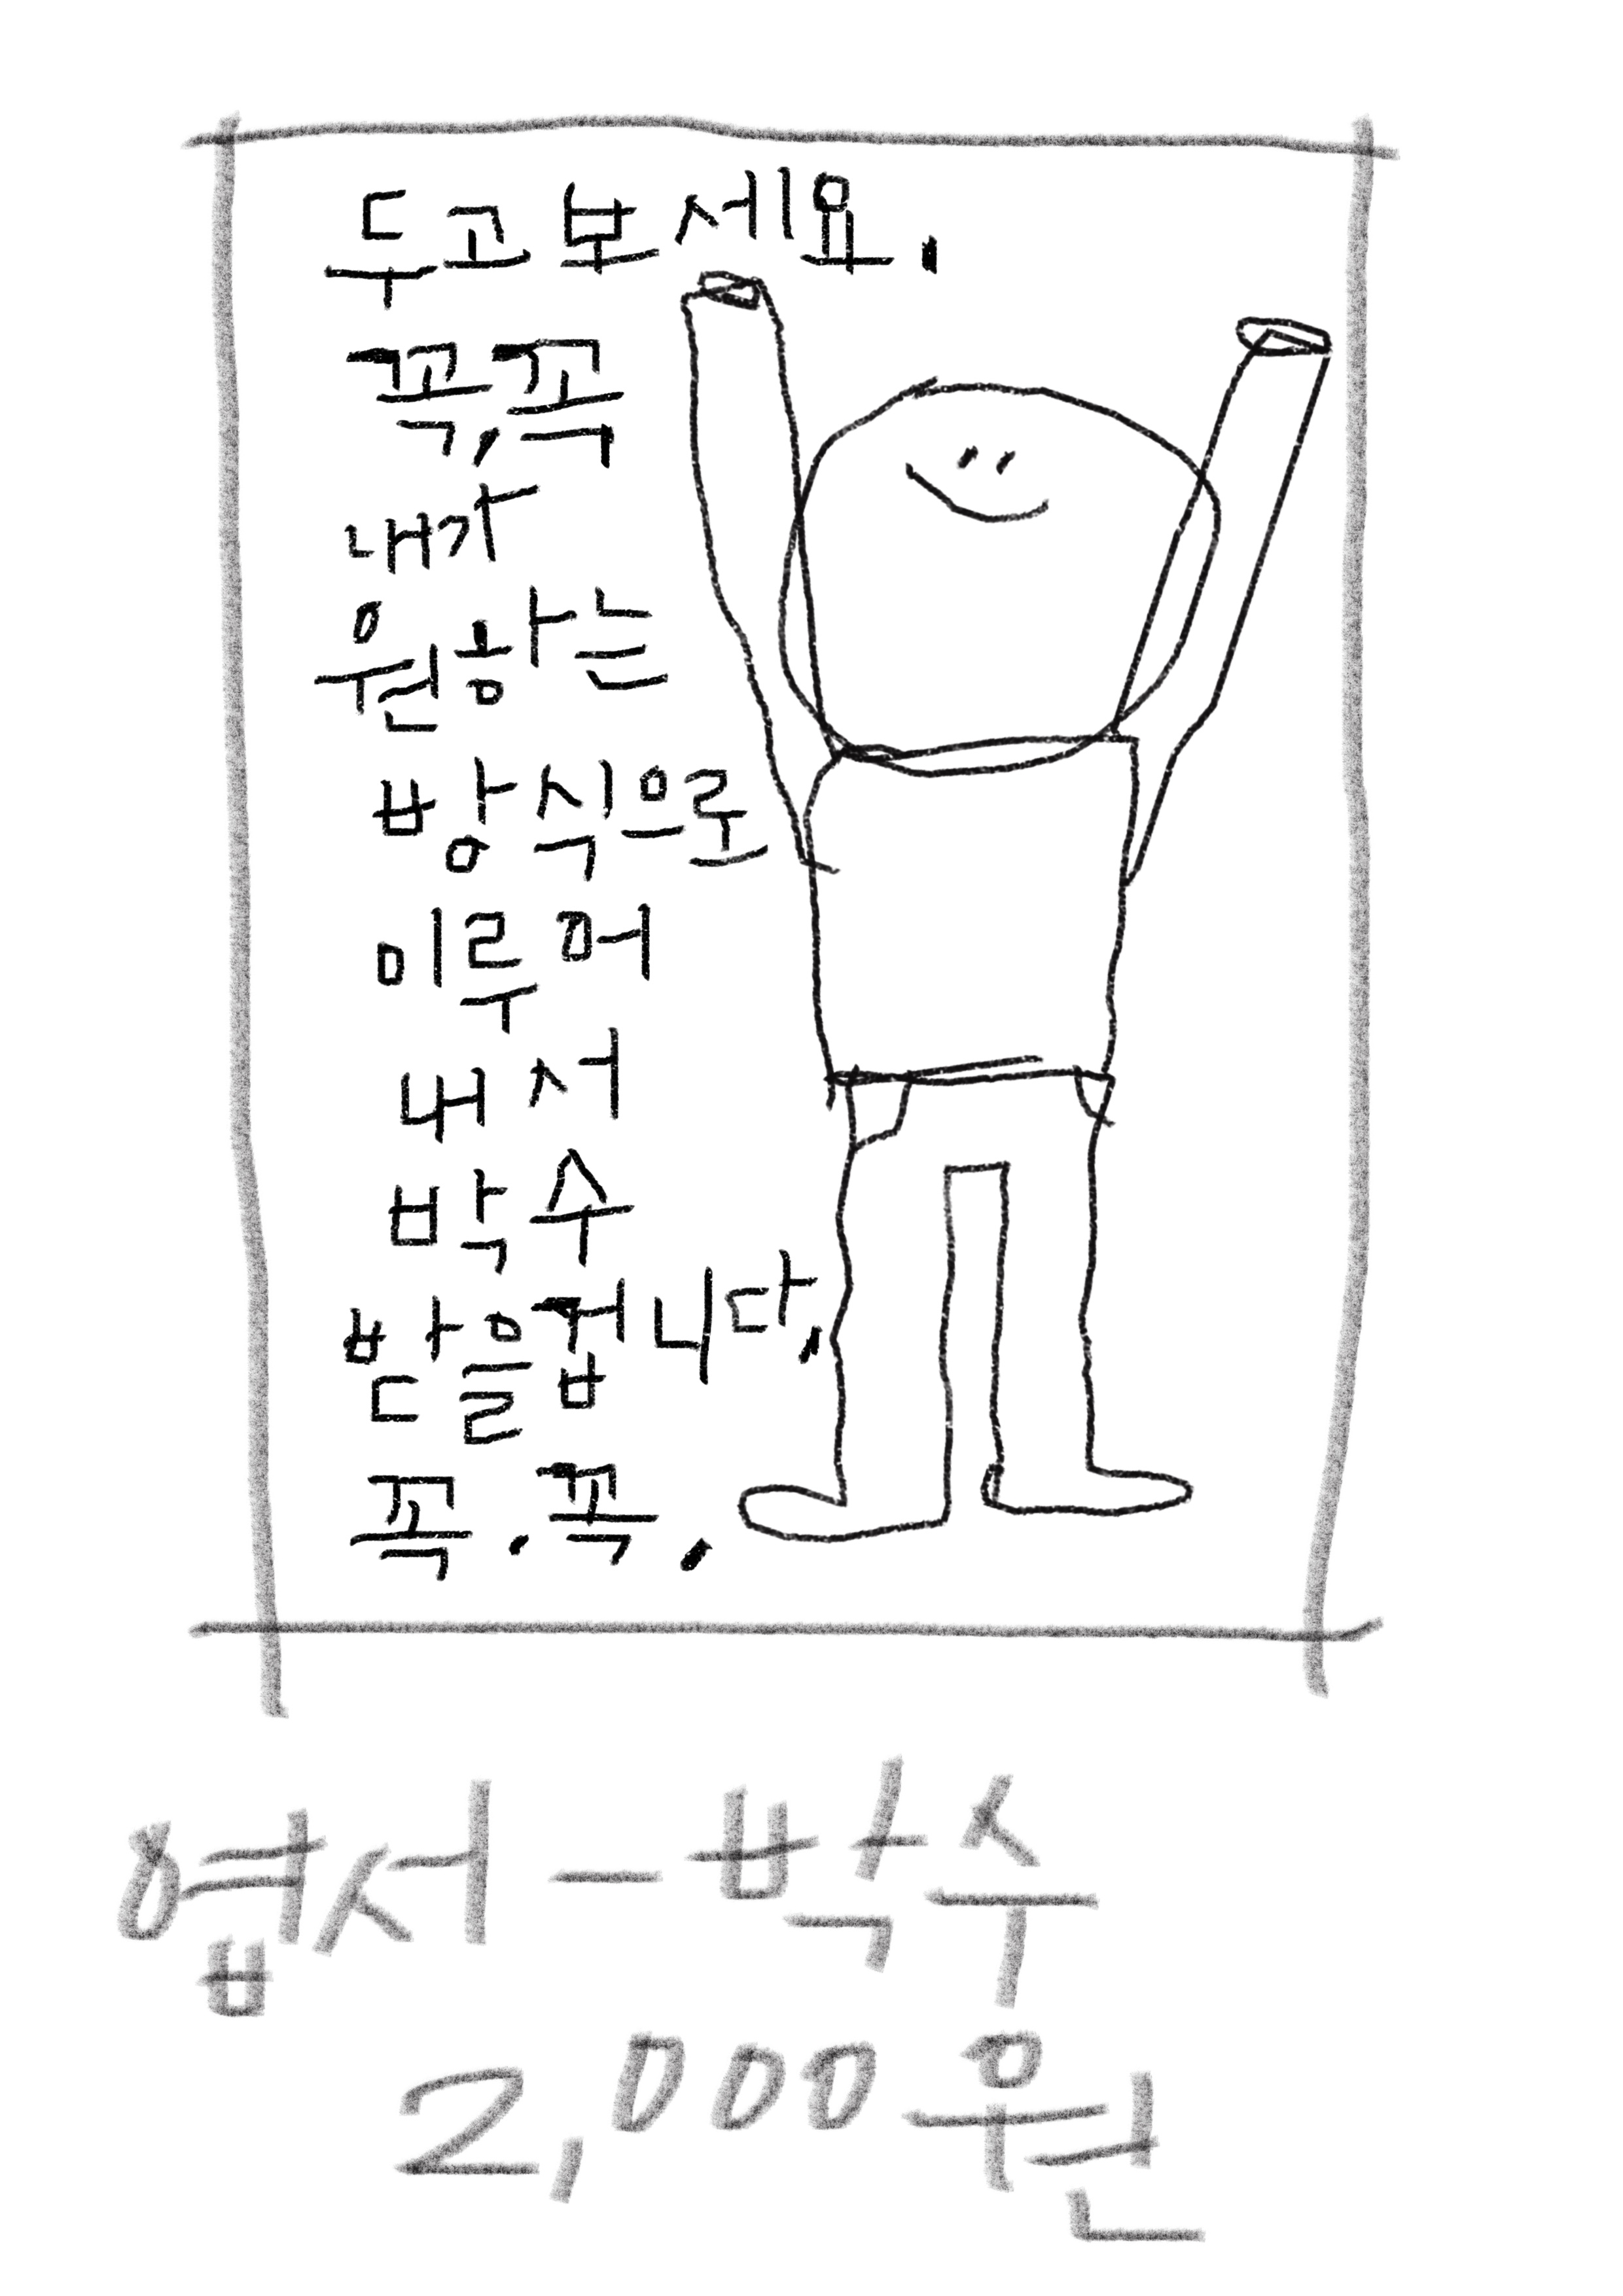 두고보세요.
꼭,꼭
내가
원하는
방식으로
이루어
내서
박수
받을껍니다,
꼭.꼭.
엽서-박수
2,000원